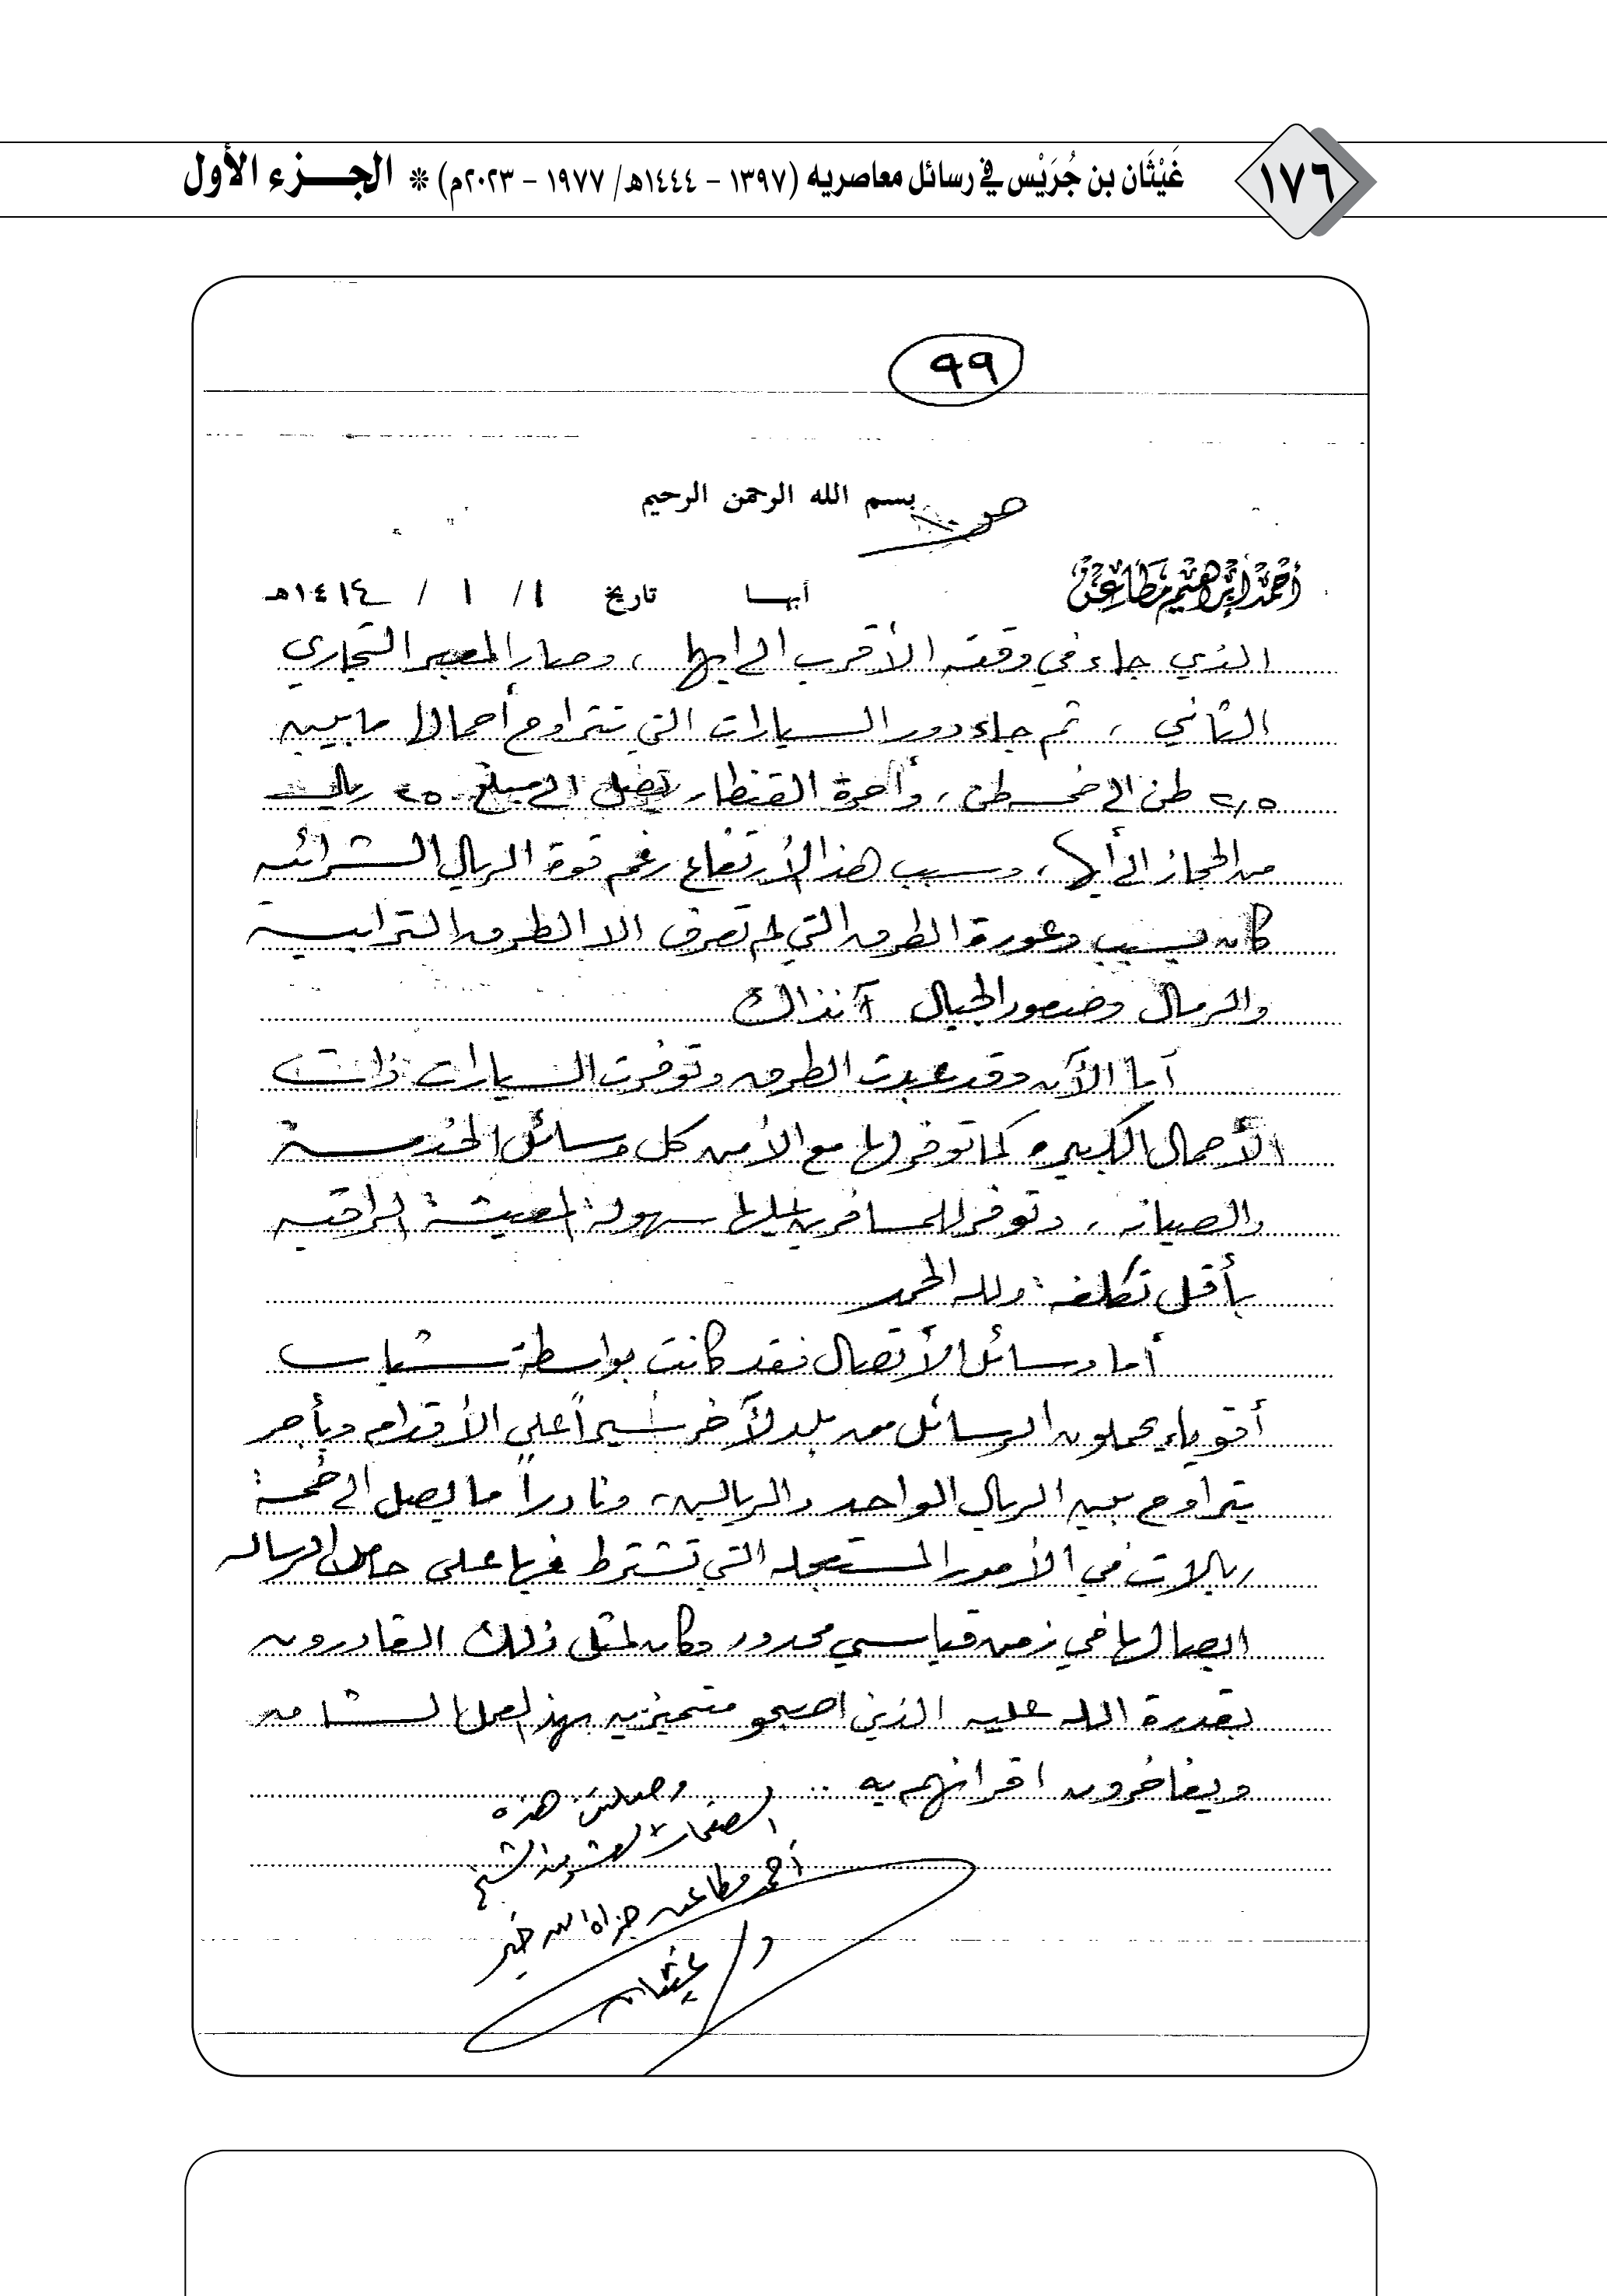 ١٧٦
غَيْثَان بن جُرَيْس في رسائل معاصريه (١٣٩٧ - ١٤٤٤هـ/ ١٩٧٧ - ٢٠٢٣م) * الجزء الأول
٩٩
بسم الله الرحمن الرحيم
أحمد إبراهيم مطاعن
أبها تاريخ ١/ ١ / ١٤١٤هـ
الذي جاء في وقته الأقرب الى ابها ، وصار المعبر التجاري
الثاني ، ثم جاء دور السيارات التي تتراوح أحمالها ما بين
٢,٥ طن الى خمسة طن ، وأجرة القنطار تصل الى مبلغ ٢٥ ريال
من الحجاز الى أبها ، وسبب هذا الأرتفاع رغم قوة الريال الشرائيه
كان بسبب وعورة الطرق التي لم تعرف الا الطرق الترابية
والرمال وصعور الجبال آنذاك
أما الآن وقد عبدت الطرق وتوفرت السيارات ذات
الأحمال الكبيره كما توفر لها مع الأمن كل وسائل الخدمة
والصيانه ، وتوفر للمسافرين عليها سهولة المعيشة الراقيه
بأقل تكلفة ولله الحمد
أما وسائل الأتصال فقد كانت بواسطة شباب
أقوياء يحملون الرسائل من بلد لآخر سيراً على الأقدام وبأجر
يتراوح بين الريال الواحد والريالين ، ونادراً ما يصل الى خمسة
ريالات في الأمور المستعجله التي تشترط فيها على حامل الرساله
ايصالها في زمن قياسي محدود وكان لمثل ذلك القادرون
بقدرة الله عليه الذين اصبحو متميزين بهذا العمل الشاق
ويفاخرون اقرانهم به ..
وصلتني هذه
الصفحات من الشيخ
أحمد مطاعن جزاه الله خير
د/ غيثان